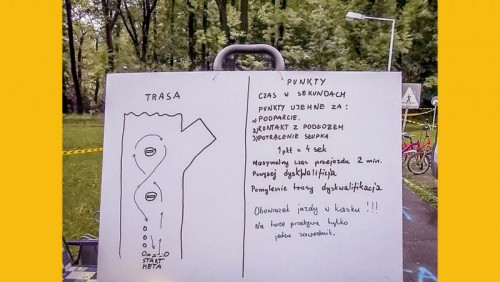 TRASA
START
META
PUNKTY
CZAS W SEKUNDACH
PUNKTY UJEMNE ZA:
1) PODPARCIE.
2) KONTAKT Z PODŁOŻEM
3) POTRĄCENIE SŁUPKA
1 pkt = 4 sek
Maksymalny czas przejazdu 2 min.
Powyżej dyskwalifikacja
Pomylenie trasy dyskwalifikacja
Obowiązek jazdy w kasku !!!
Na torze przebywa tylko
jeden zawodnik.